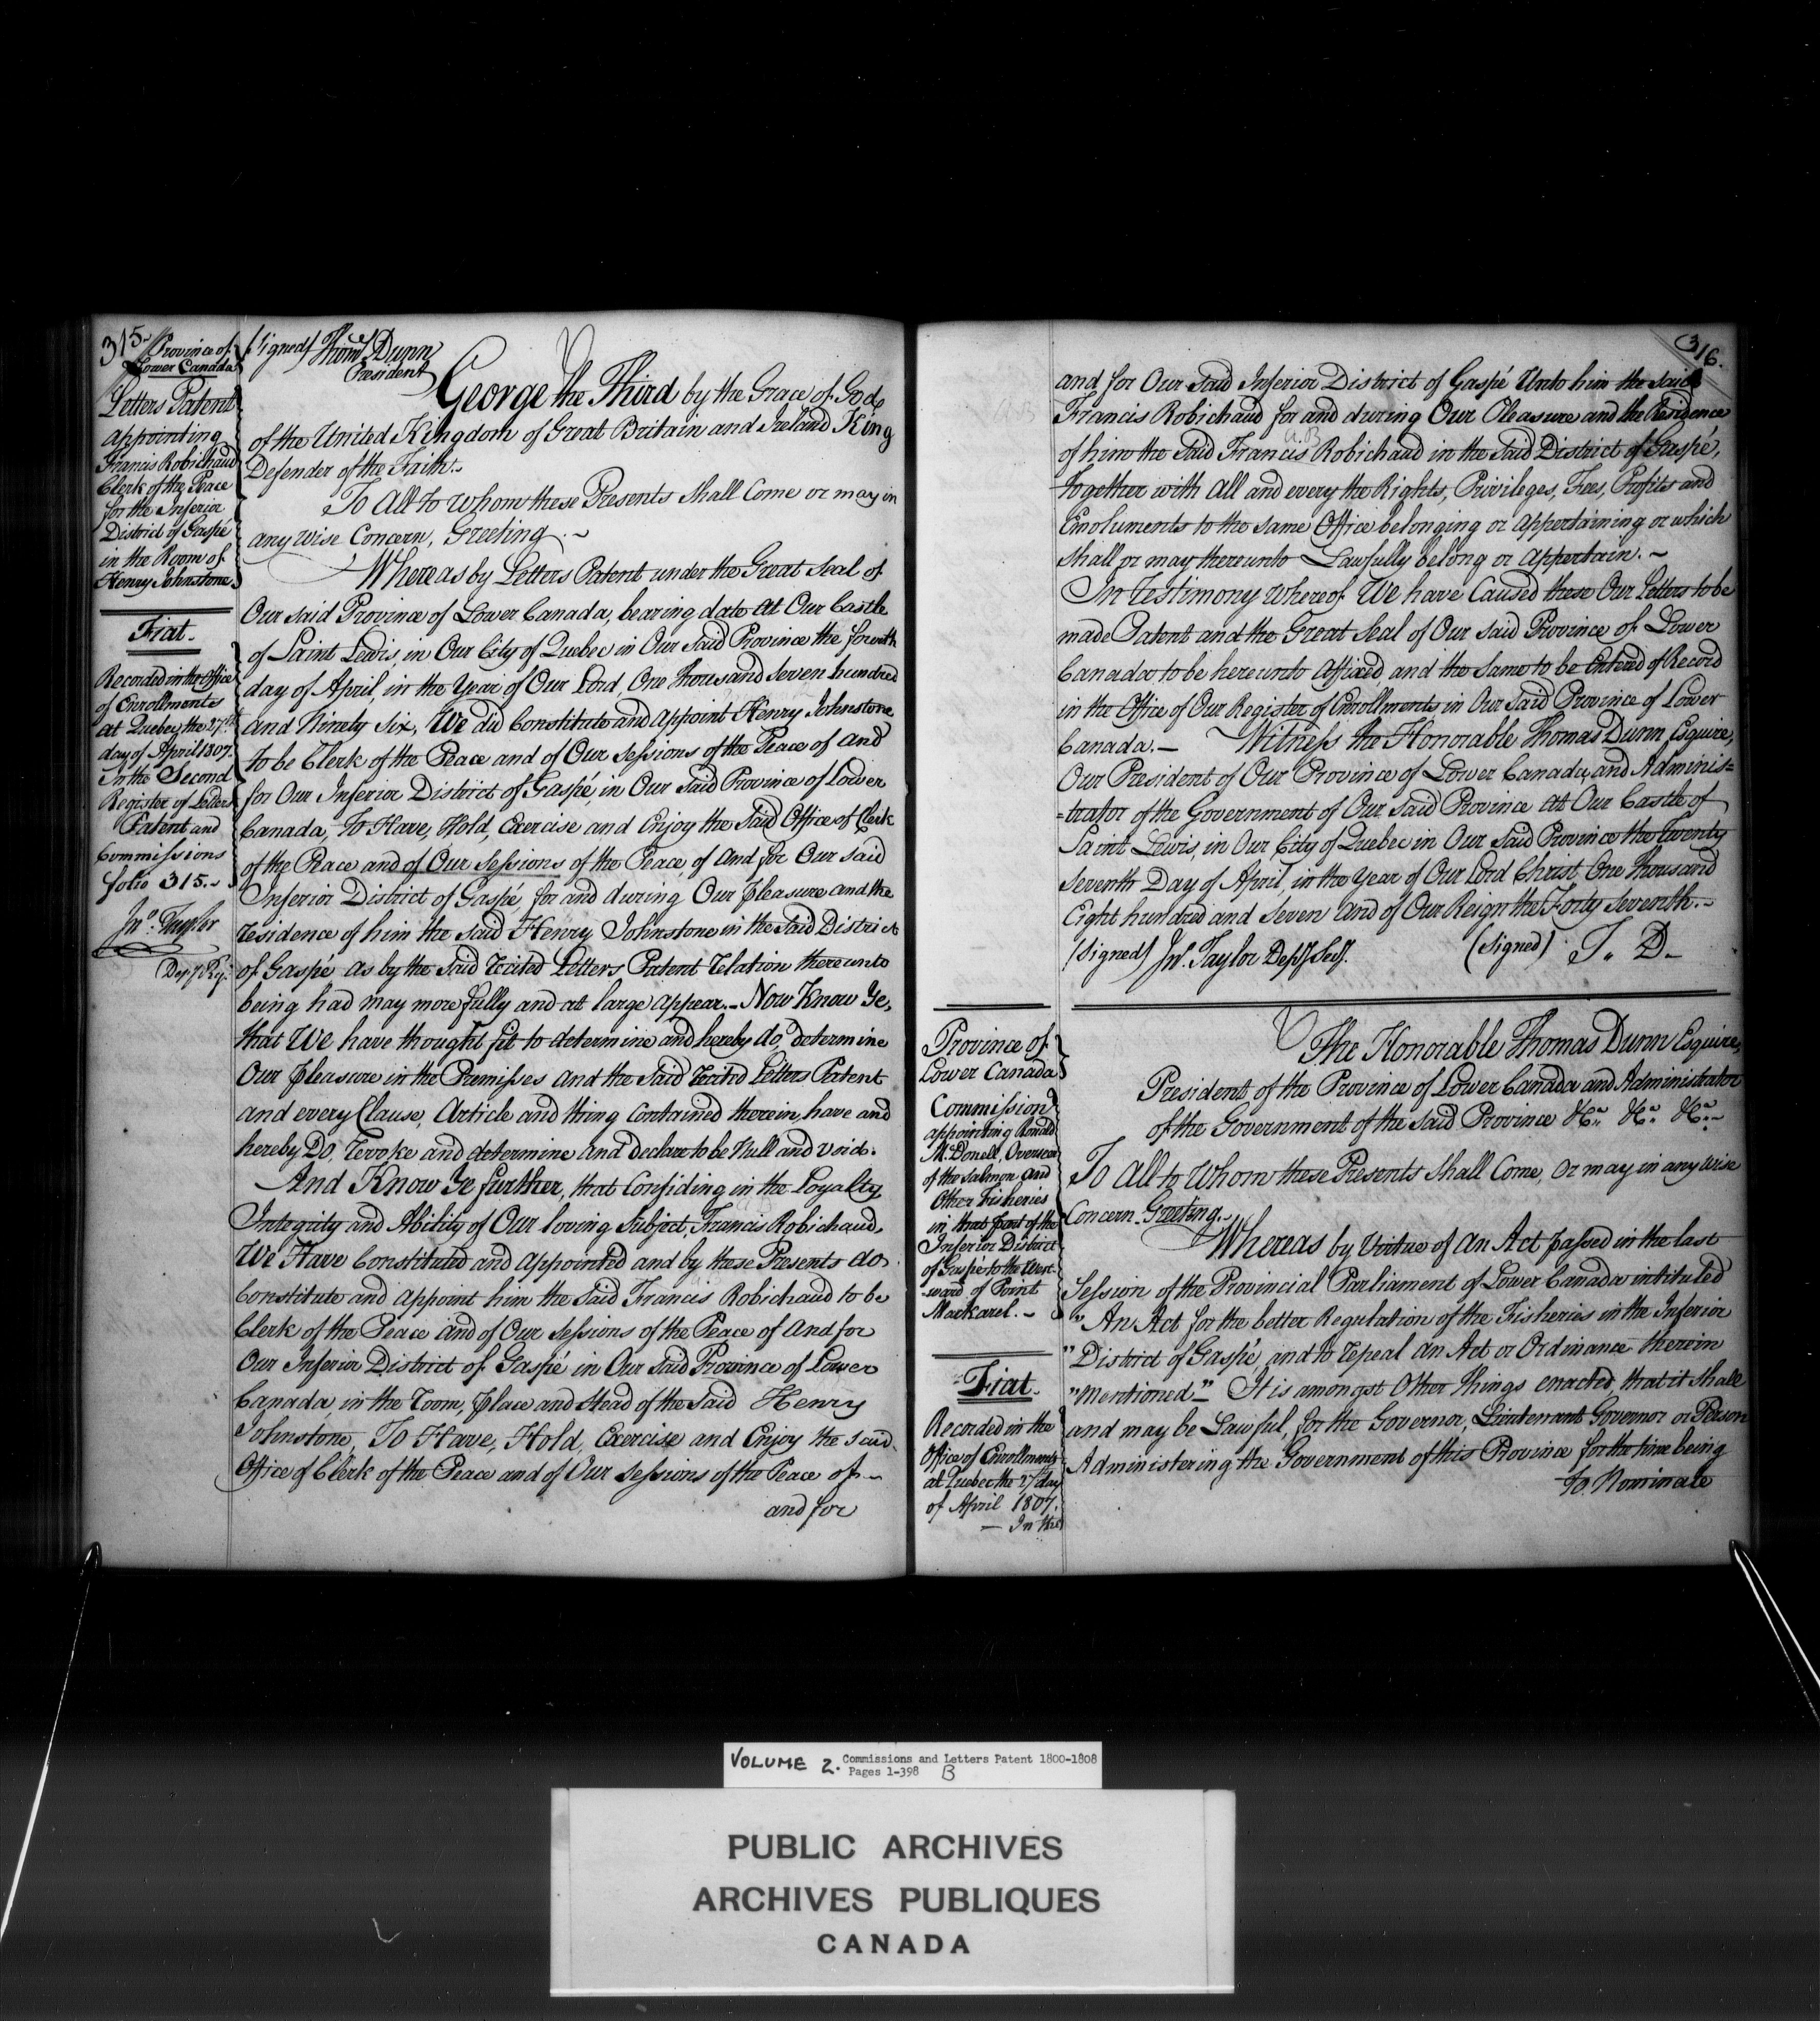 315.
Province of
Lower Canada
Letters Patent
appointing
Francis Robichaud
Clerk of the Peace
for the Inferior
District of Gaspé
in the Room of
Henry Johnstone
Fiat.
Recorded in the Office
of Enrollments
at Quebec, the 27th
day of April 1807.
In the Second
Register of Letters
Patent and
Commissions
folio 315.-
Jno. Taylor
Depy Regr.
(Signed) Thoms Dunn
President
George the Third by the Grace of God,
of the United Kingdom of Great Britain and Ireland King
Defender of the Faith.-
To All to whom these Presents shall Come or may in
any wise Concern, Greeting.-
Whereas by Letters Patent under the Great Seal of
Our said Province of Lower Canada, bearing date at Our Castle
of Saint Lewis, in Our City of Quebec in Our said Province the fourth
day of April, in the Year of Our Lord, One Thousand Seven hundred
and Ninety Six, We did Constitute and appoint Henry Johnstone
to be Clerk of the Peace and of Our Sessions of the Peace of and
for Our Inferior District of Gaspé, in Our said Province of Lower
Canada, To Have, Hold, Exercise and Enjoy the Said Office of Clerk
of the Peace and of Our Sessions of the Peace, of and for Our said
Inferior District of Gaspé, for and during Our Pleasure and the
residence of him the said Henry Johnstone in the said District
of Gaspé as by the said recited Letters Patent relation thereunto
being had may more fully and at large appear.- Now Know Ye,
that We have thought fit to determine and hereby do, determine
Our Pleasure in the Premisses and the said recited Letters Patent
and every Clause, Article and thing contained therein, have and
hereby Do, revoke and determine and declare to be Null and void.
And Know Ye further, that Confiding in the Loyalty
Integrity and Ability of Our loving Subject, Francis Robichaud,
We Have Constituted and appointed and by these Presents do
Constitute and appoint him the said Francis Robichaud to be
Clerk of the Peace and of Our Sessions of the Peace of and for
Our Inferior District of Gaspé in Our said Province of Lower
Canada in the room, place and stead of the said Henry
Johnstone, To Have, Hold, Exercise and Enjoy the said
Office of Clerk of the Peace and of Our Sessions of the Peace of -
and for
316.
and for Our said Inferior District of Gaspé Unto him the said
Francis Robichaud for and during Our Pleasure and the Residence
a.B
of him the said Francis Robichaud in the said District of Gaspé,
together with all and every the Rights, Privileges, Fees, Profits and
Emoluments to the same Office belonging or appertaining or which
shall or may thereunto Lawfully belong or appertain.-
In Testimony whereof We have Caused these Our Letters to be
made Patent and the Great Seal of Our said Province of Lower
Canada to be hereunto affixed and the same to be Entered of Record
in the Office of Our Register of Enrollments in Our said Province of Lower
Canada.- Witness the Honorable Thomas Dunn Esquire,
Our President of Our Province of Lower Canada, and Adminis=
=trator of the Government of Our said Province at Our Castle of
Saint Lewis, in Our City of Quebec in Our said Province the twenty
seventh Day of April, in the Year of Our Lord Christ One thousand
Eight hundred and Seven and of Our Reign the Forty Seventh.-
(Signed) Jn. Taylor Depy Secy. (signed) T.. D-
Province of
Lower Canada
Commission
appointing Ronald
McDonell, Overseer
of the Salmon and
Other Fisheries
in that part of the
Inferior District
of Gaspé to the West-
ward of Point
Mackarel.-
Fiat.
Recorded in the
Office of Enrollments
at Quebec the 27 day
of April 1807.
- In the
The Honorable Thomas Dunn Esquire,
President of the Province of Lower Canada and Administrator
of the Government of the said Province &ca &ca &ca
To All to Whom these Presents shall Come, or may in any wise
Concern Greeting.
Whereas by Virtue of An Act passed in the last
Session of the Provincial Parliament of Lower Canada intituled
"An Act for the better Regulation of the Fisheries in the Inferior
"District of Gaspé, and to repeal An Act or Ordinance therein
"mentioned-" It is amongst Other things enacted, that it shall
and may be Lawful, for the Governor, Lieutenant Governor or Person
Administering the Government of this Province for the time being
to Nominate
VOLUME 2. Commissions and Letters Patent 1800-1808
Pages 1-398 B
PUBLIC ARCHIVES
ARCHIVES PUBLIQUES
CANADA